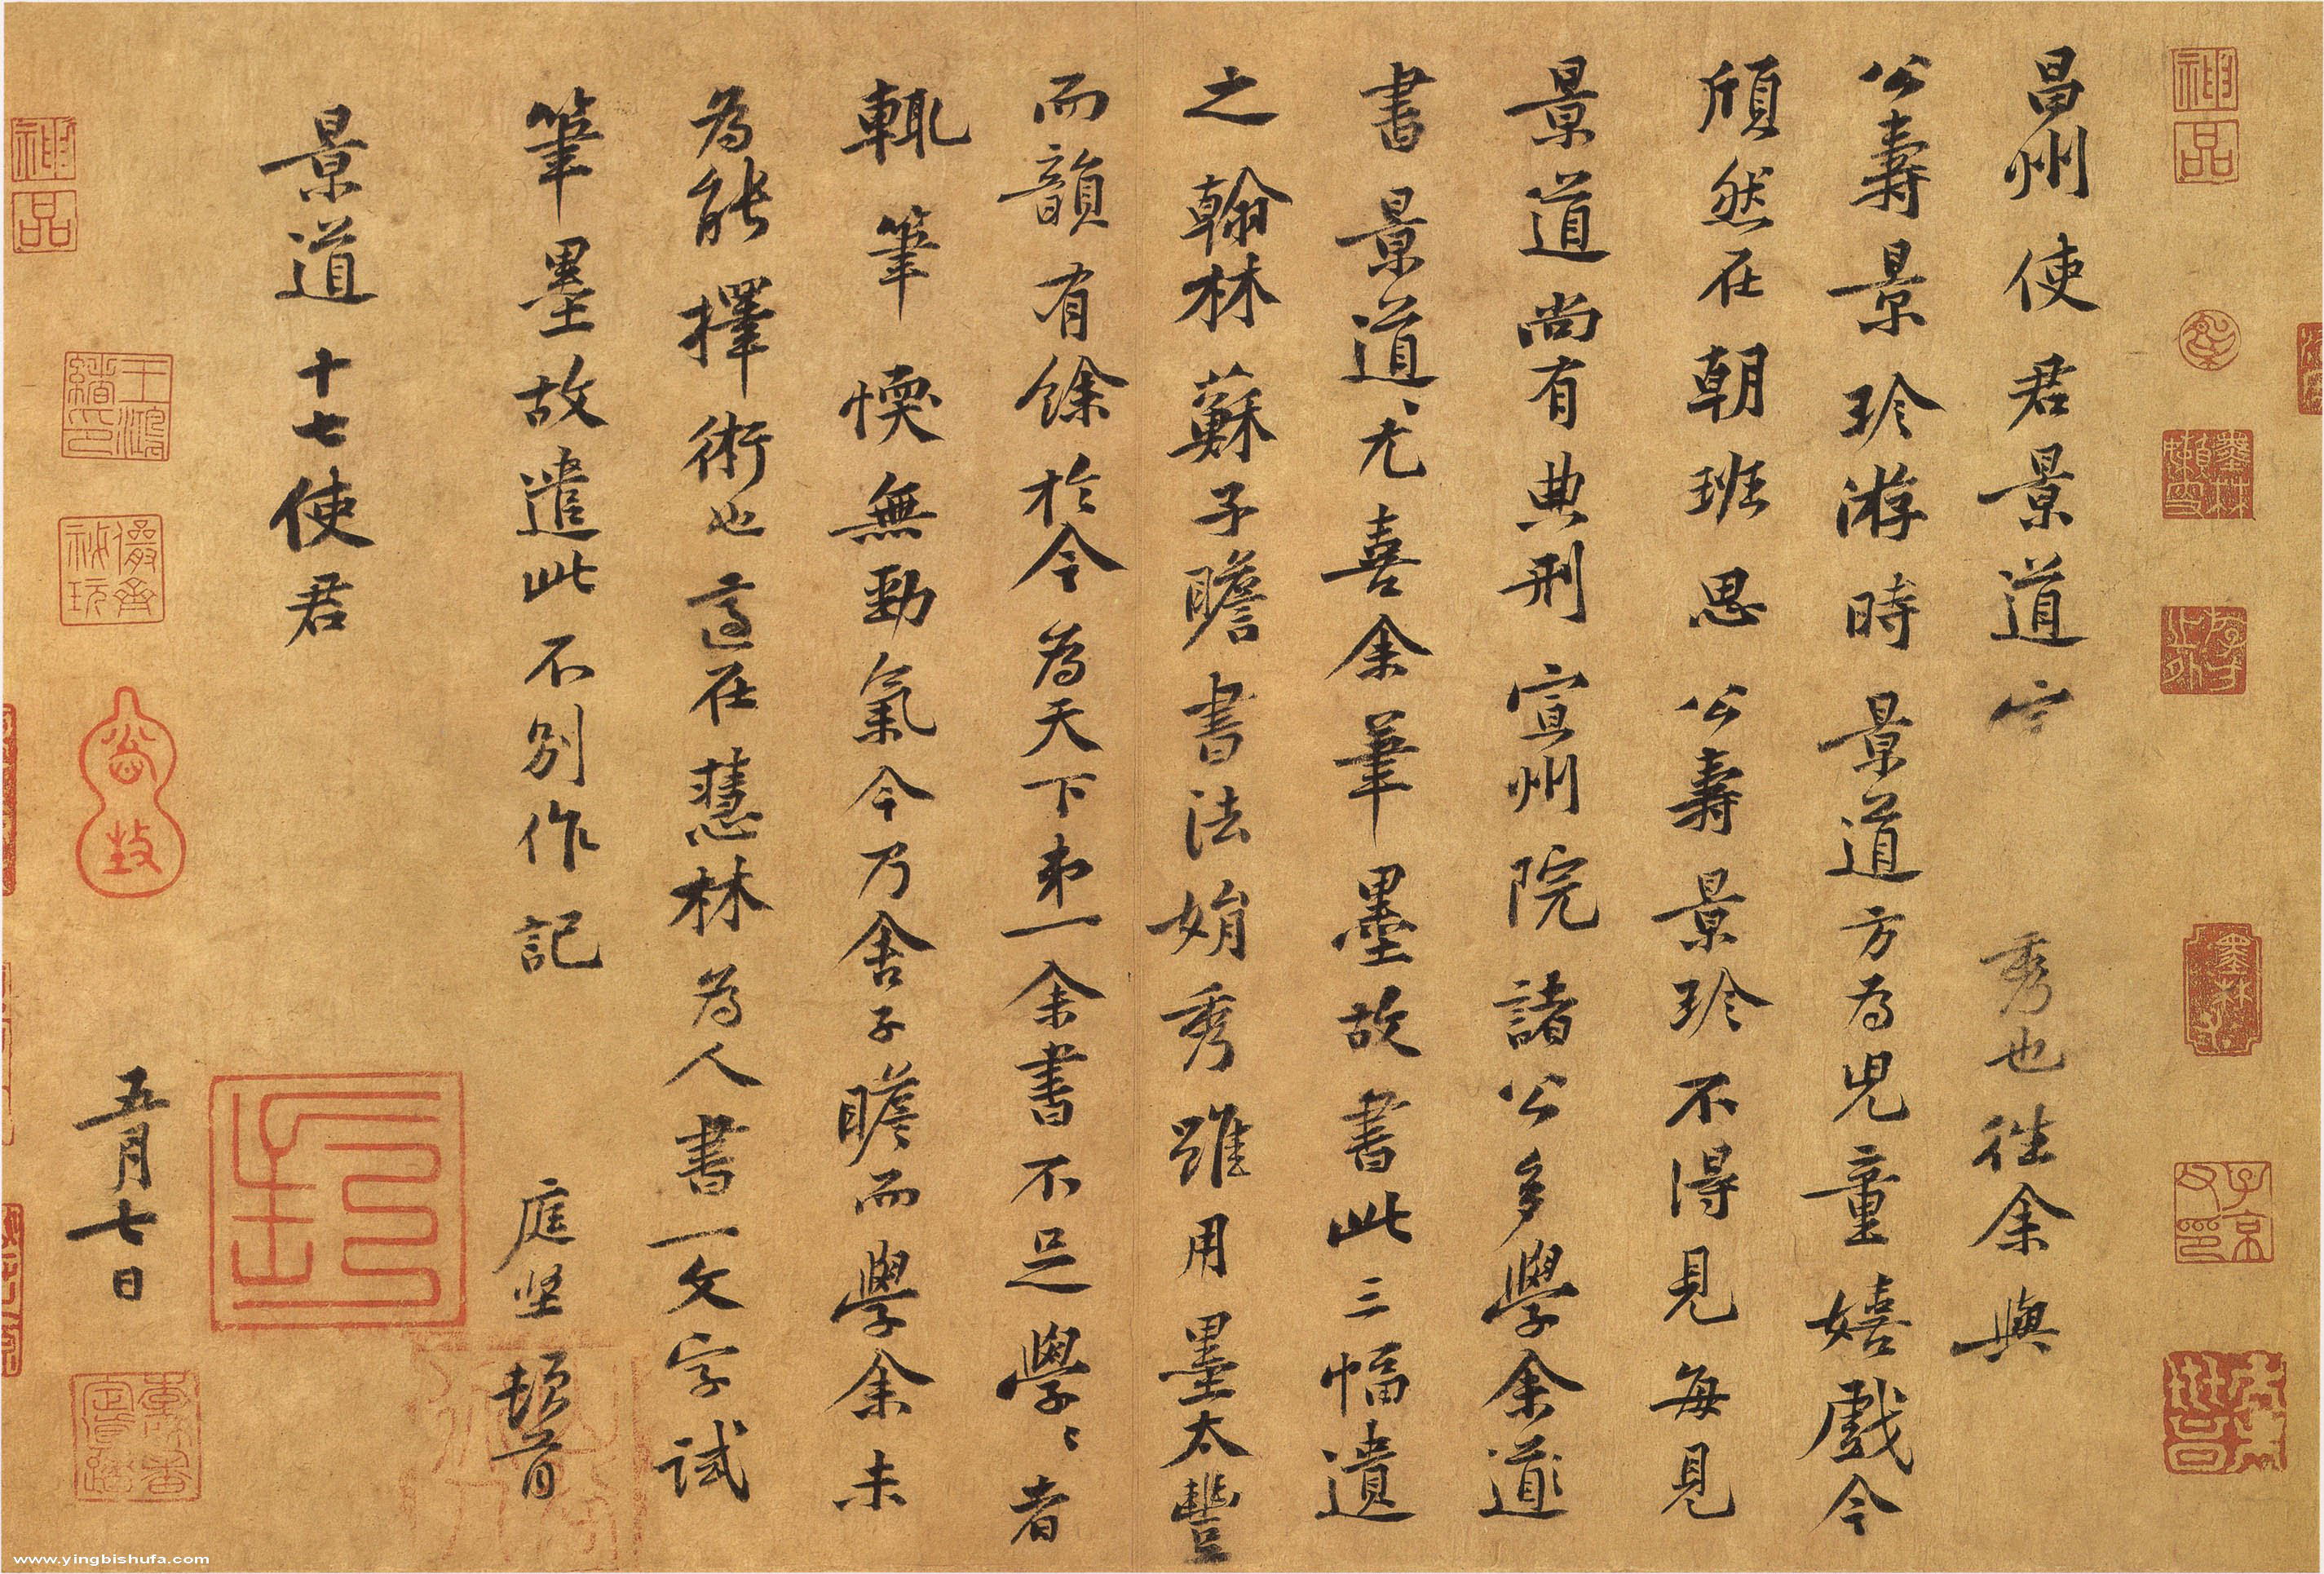 昌州使君景道宗秀也往余與
公壽景珍游時景道方為兒童嬉戲今
頎然在朝班思公壽景珍不得見每見
景道尚有典刑宣州院諸公多學余道
書景道尤喜余筆墨故書此三幅遺
之翰林蘇子瞻書法娟秀雖用墨太豐
而韻有餘於今為天下第一余書不足學學者
輒筆愞無勁氣今乃舍子瞻而學余未
為能擇術也適在慧林為人書一文字試
筆墨故遣此不別作記 庭堅頓首
景道十七使君
五月七日
神品
神品
墨林
子京
王鴻緒印
儼齋祕玩
封
www.yingbishufa.com